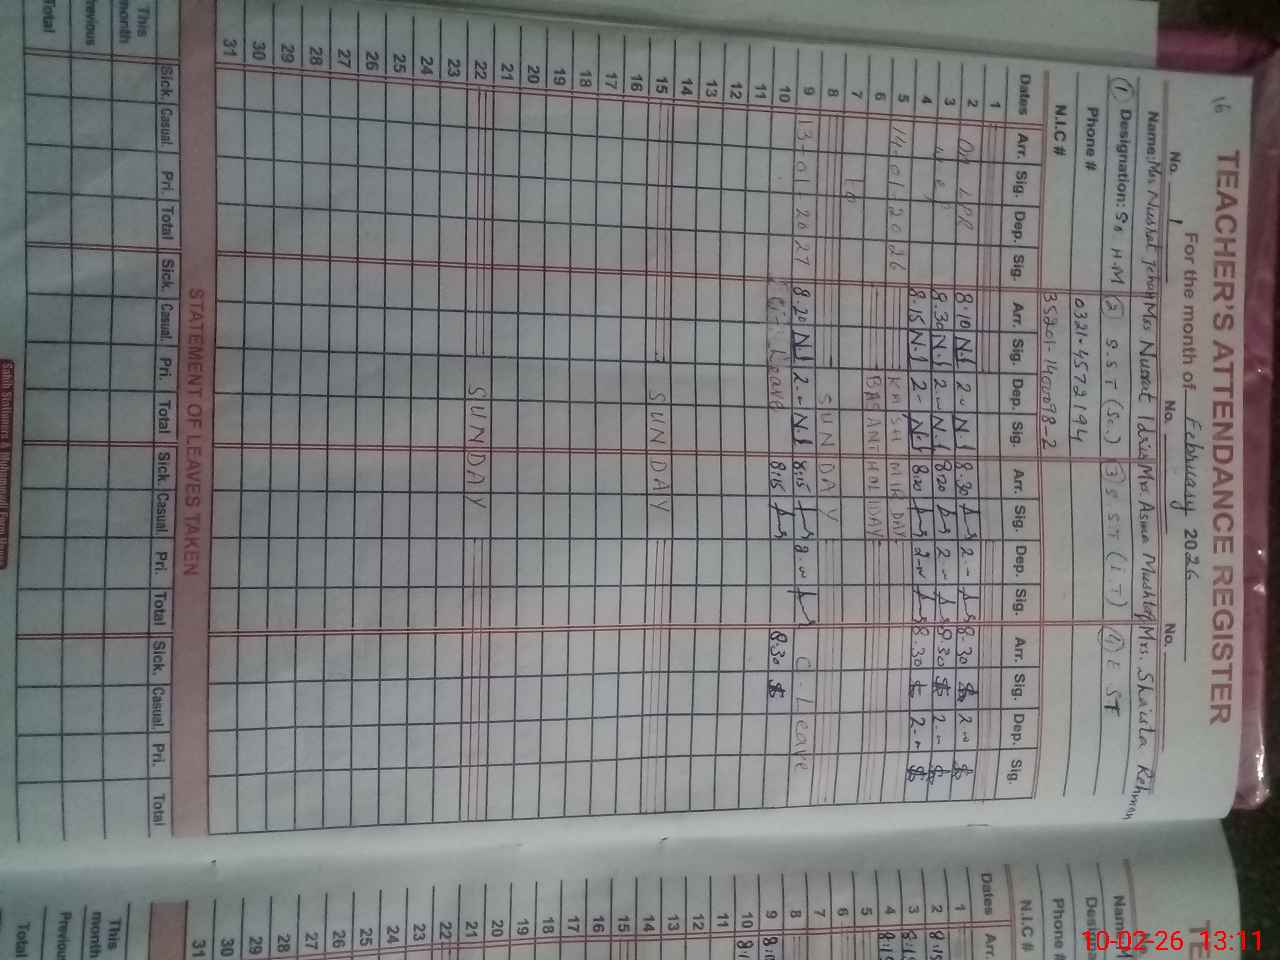 16
TEACHER'S ATTENDANCE REGISTER
For the month of February 2026
No. 1 No. No.
Name: Mrs. Nusrat Jehan Mrs Nusrat Idris Mrs. Asma Mushtaq Mrs. Shaista Rehman
① Designation: Sr H.M ② S.S.T (Sc.) ③ S.S.T (I.T) ④ E ST
Phone # 0321-4572194
N.I.C # 35201-1400098-2
Dates Arr. Sig. Dep. Sig. Arr. Sig. Dep. Sig. Arr. Sig. Dep. Sig. Arr. Sig. Dep. Sig.
1
2 On LPR 8.10 N.I 2 - N.I 8.30 2 - 8.30 2 -
3 w.e.f 8.30 N.I 2 - N.I 8.20 2 - 8.30 2 -
4 8.15 N.I 2 - N.I 8.20 2 - 8.30 2 -
5 14-01-2026 KASHMIR DAY
6 BASANT HOLIDAY
7 to
8 SUNDAY
9 13-01-2027 8.20 N.I 2 - N.I 8:15 2 - C. Leave
10 Leave 8:15 8.30
11
12
13
14
15 SUNDAY
16
17
18
19
20
21
22 SUNDAY
23
24
25
26
27
28
29
30
31
STATEMENT OF LEAVES TAKEN
Sick. Casual. Pri. Total Sick. Casual. Pri. Total Sick. Casual. Pri. Total Sick. Casual. Pri. Total
This month
Previous
Total
Sahib Stationers &
TE
Nam
Des
Phone #
N.I.C #
Dates Arr.
1
2 8:15
3 8:15
4 8:15
5
6
7
8
9
10
11
12
13
14
15
16
17
18
19
20
21
22
23
24
25
26
27
28
29
30
31
This month
Previous
Total
10-02-26 13:11